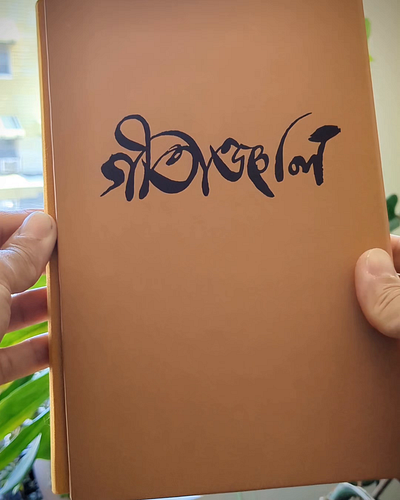 গীতাঞ্জলি